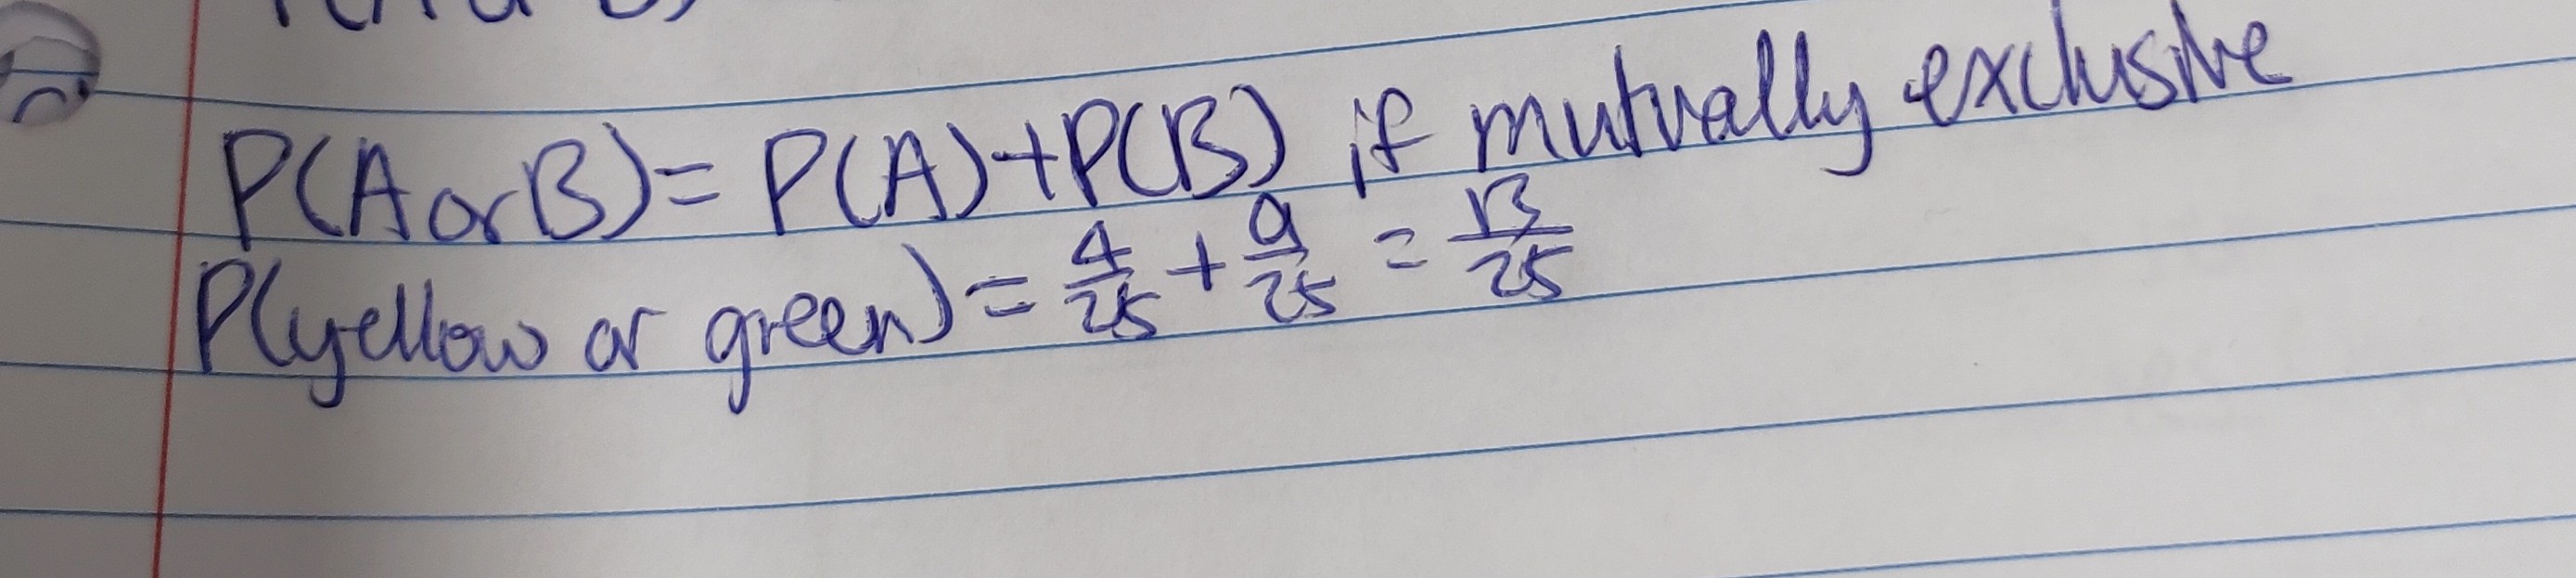 P(A or B) = P(A) + P(B) if mutually exclusive
P(yellow or green) = 4/25 + 9/25 = 13/25